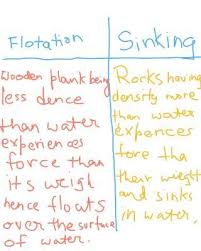 Flotation
Wooden plank being
less dence
than water
experiences
force than
it's weigh
hence floats
over the surface
of water.
Sinking
Rocks having
density more
than water
expences
fore tha
their weight
and sinks
in water.